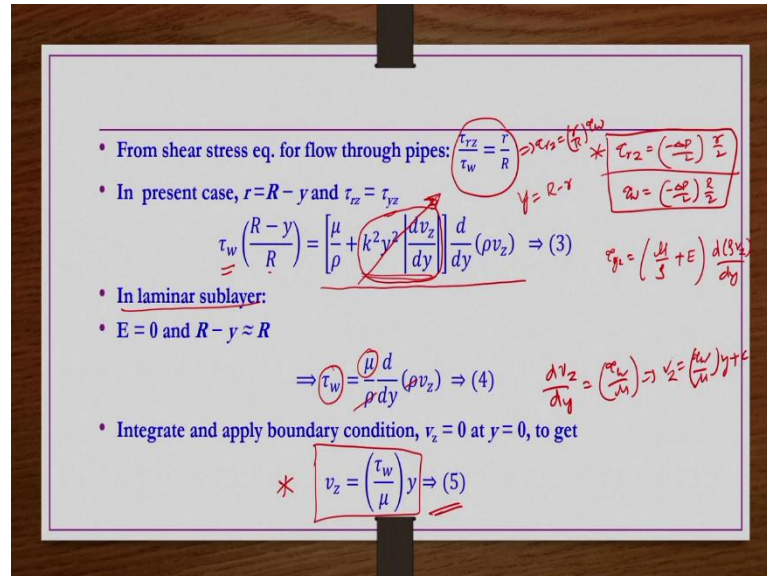 • From shear stress eq. for flow through pipes: τ_rz/τ_w = r/R ⇒ τ_rz = (r/R) τ_w
* τ_rz = (-Δp/L) r/2
τ_w = (-Δp/L) R/2
• In present case, r = R − y and τ_rz = τ_yz
y = R-r
τ_w ((R − y)/R) = [μ/ρ + k²y² |dv_z/dy|] d/dy (ρv_z) ⇒ (3)
τ_yz = (μ/ρ + E) d(ρv_z)/dy
• In laminar sublayer:
• E = 0 and R − y ≈ R
⇒ τ_w = μ/ρ d/dy (ρv_z) ⇒ (4)
dv_z/dy = (τ_w/μ) ⇒ v_z = (τ_w/μ) y + c
• Integrate and apply boundary condition, v_z = 0 at y = 0, to get
* v_z = (τ_w/μ) y ⇒ (5)